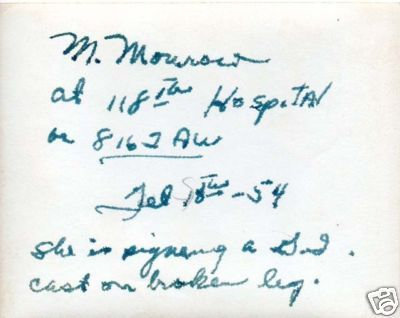 M. Monroe
at 118th Hospital
or 8162 AU
Feb 18th - 54
she is signing a
cast on broken leg.